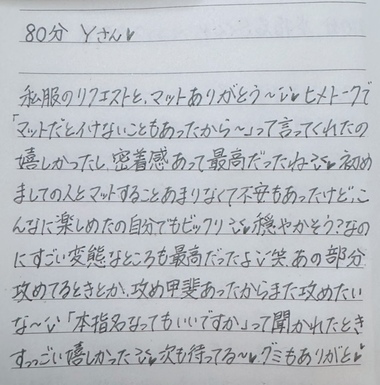 80分 Yさん♥
私服のリクエストと、マットありがとう〜♥ヒメトークで
「マットだとイけないこともあったから〜」って言ってくれたの
嬉しかったし、密着感あって最高だったね♥初め
ましての人とマットすることあまりなくて不安もあったけど、こ
んなに楽しめたの自分でもビックリ♥穏やかそう?なの
にすごい変態なところも最高だったよ笑、あの部分
攻めてるときとか、攻め甲斐あったからまた攻めたい
な〜「本指名なってもいいですか」って聞かれたとき
すっごい嬉しかった♥次も待ってる〜♥グミもありがと♥